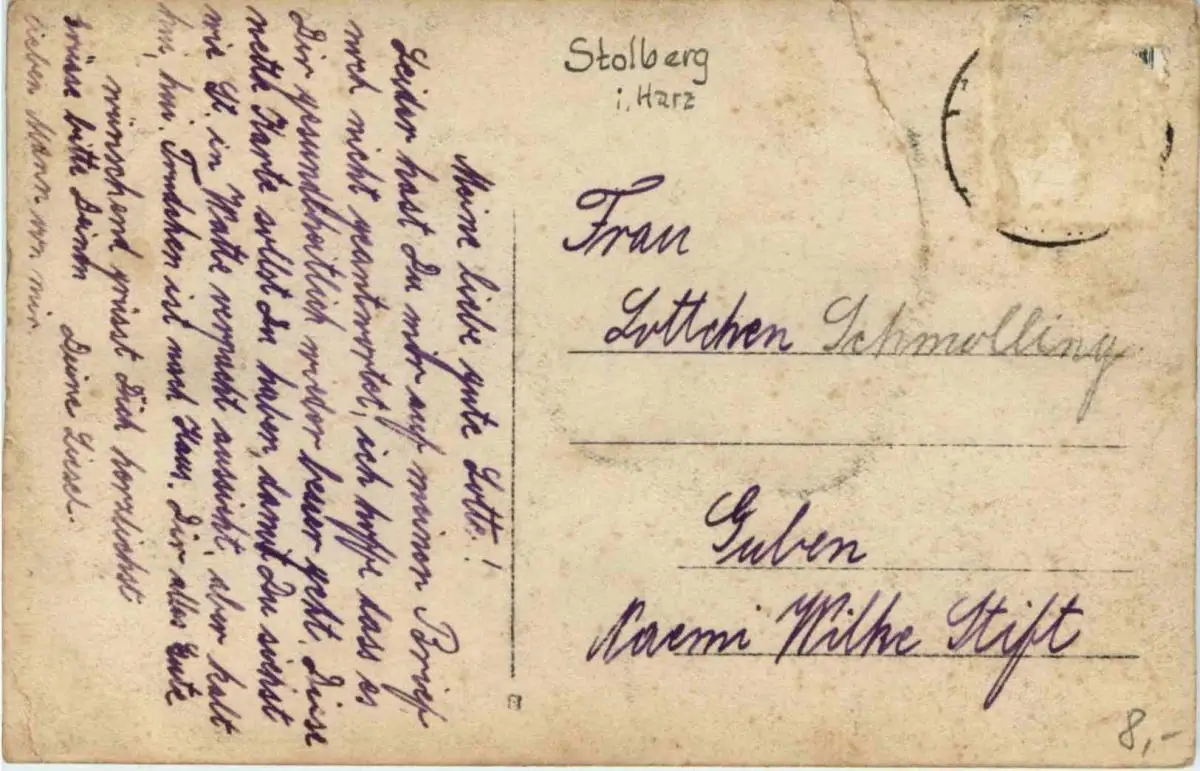 Meine liebe gute Lotte!
Leider hast Du mir auf meinen Brief
noch nicht geantwortet, ich hoffe dass es
Dir gesundheitlich wieder besser geht. Diese
nette Karte sollst Du haben, damit Du siehst
wie St. in Watte verpackt aussieht, aber kalt
hu, hu. ist nach Haus. Dir alles Gute
wünschend grüsst Dich herzlichst
Deine Liesel.
Grüsse bitte Deinen
lieben Mann von mir.
Stolberg
i. Harz
Frau
Lottchen Schmolling
Guben
Naemi Wilke Stift
8,-